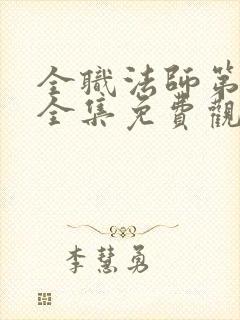 全職法師第
全集免費觀
李慧勇